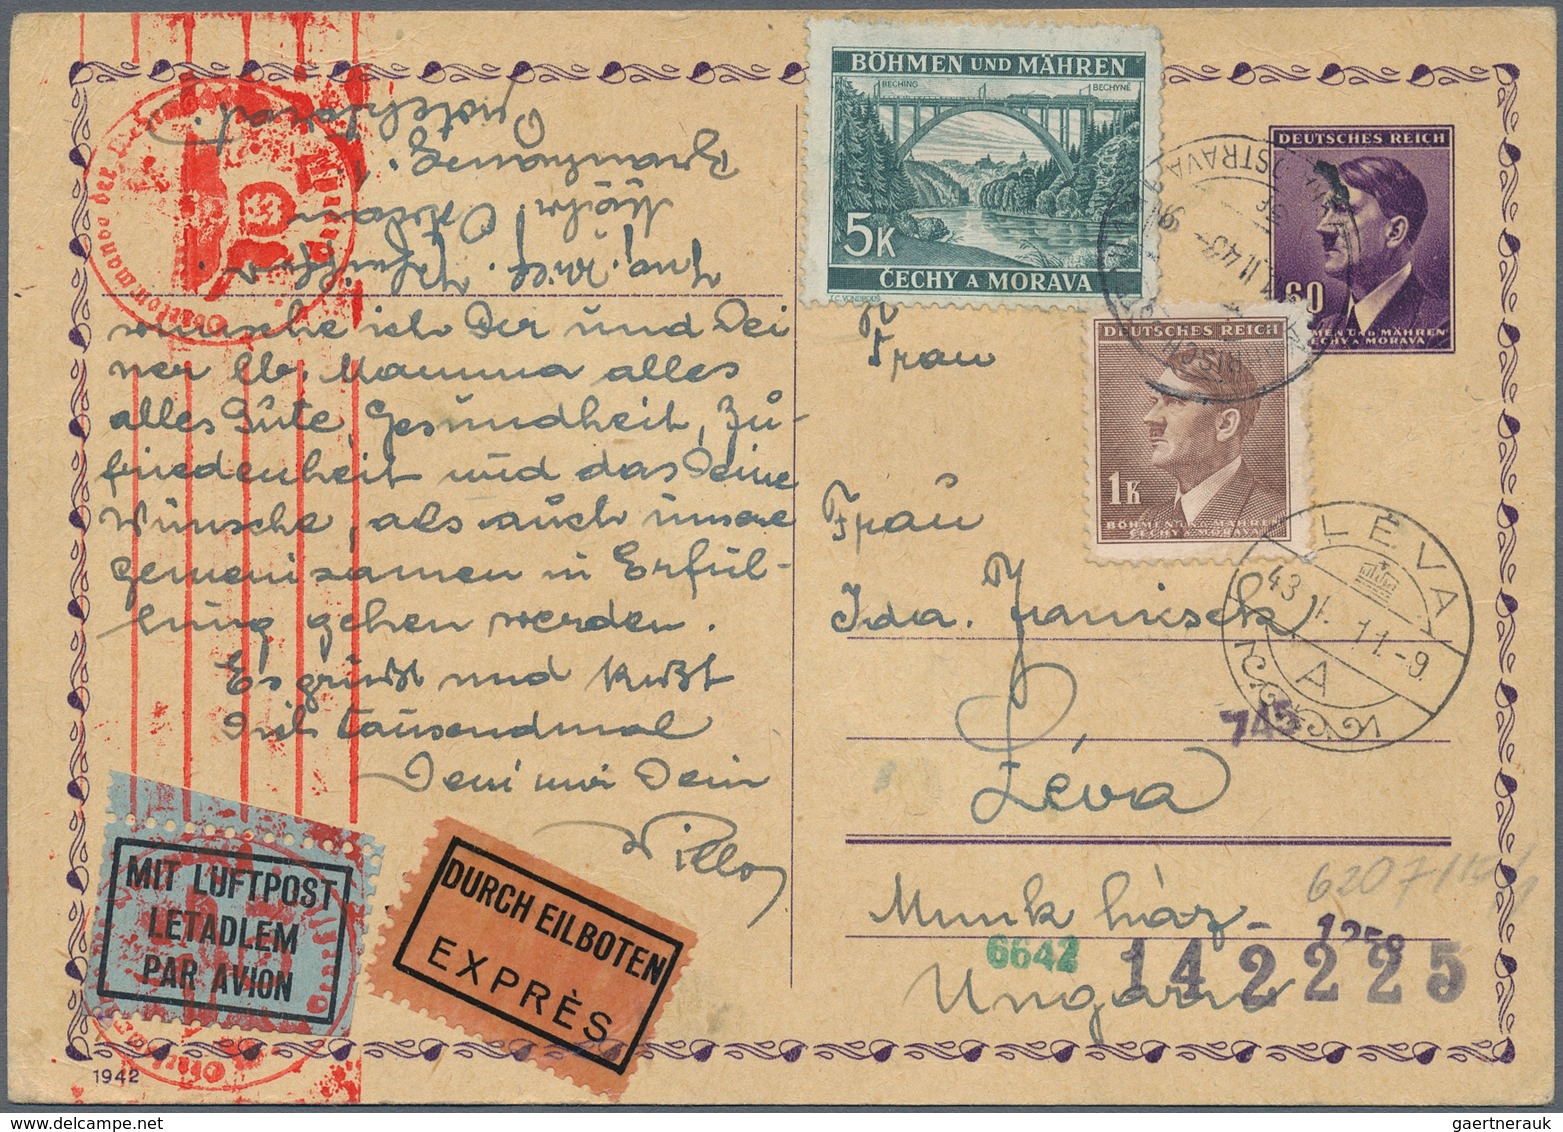 BÖHMEN UND MÄHREN
BECHING
BECHYNĚ
5K
ČECHY A MORAVA
DEUTSCHES REICH
60
BÖHMEN UND MÄHREN
ČECHY A MORAVA
OSTRAVA
DEUTSCHES REICH
1K
BÖHMEN UND MÄHREN
ČECHY A MORAVA
Mähr. Ostrau
Protektorat.
wünsche ich Dir und Dei
ner lb. Mamma alles
alles Gute, Gesundheit, Zu-
friedenheit und das Deine
Wünsche, als auch unsere
gemeinsamen in Erfül-
lung gehen werden.
Es grüßt und küßt
Dein
Frau
Frau
Ida
Léva
Munkház
Ungarn
LÉVA
43 11.-9
A
745
6207/
1258
6642
142225
MIT LUFTPOST
LETADLEM
PAR AVION
DURCH EILBOTEN
EXPRÈS
1942
gaertnerauk